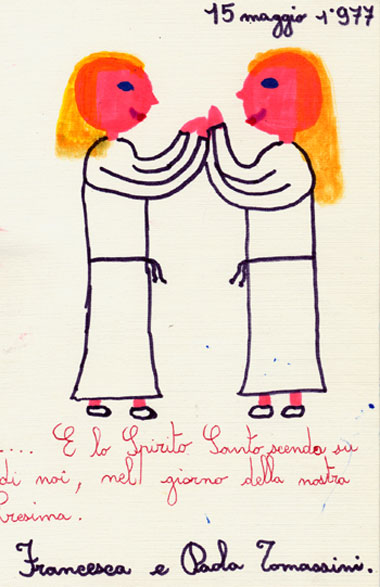 15 maggio 1977
.... E lo Spirito Santo scenda su
di noi, nel giorno della nostra
Cresima.
Francesca e Paola Tomassini.